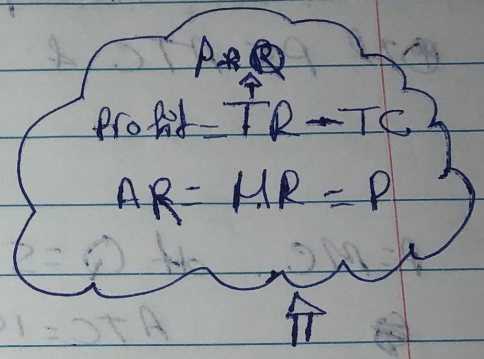 P * Q
Profit = TR - TC
AR = MR = P
π